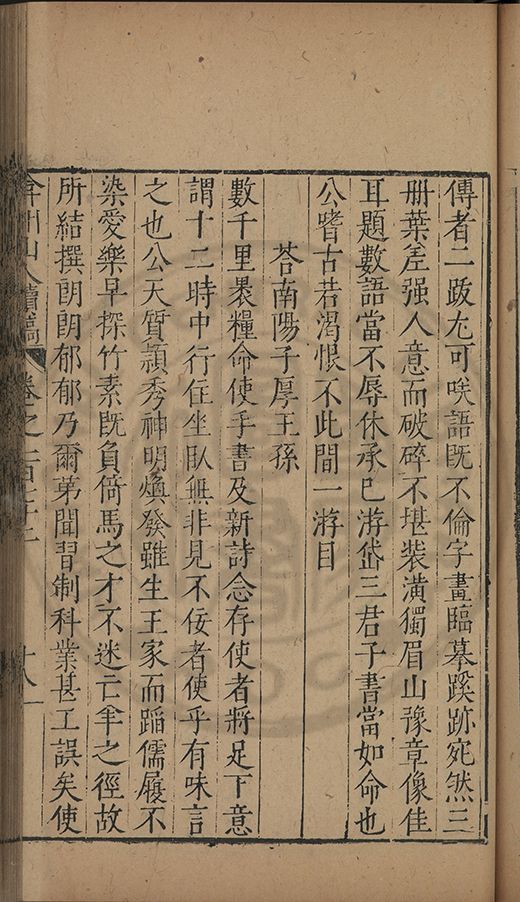 傳者二跋尤可咲語既不倫字畫臨摹蹊跡宛然三
册葉差强人意而破碎不堪装潢獨眉山豫章像佳
耳題數語當不辱休承已游岱三君子書當如命也
公嗜古若渴恨不此間一游目
荅南陽子厚王孫
數千里褁糧命使手書及新詩念存使者將足下意
謂十二時中行住坐臥無非見不佞者使乎有味言
之也公天質頴秀神明煥發雖生王家而蹈儒履不
染愛樂早探竹素既負倚馬之才不迷亡羊之徑故
所結撰朗朗郁郁乃爾苐聞習制科業甚工誤矣使
弇州山人續稿 卷之一百七十二